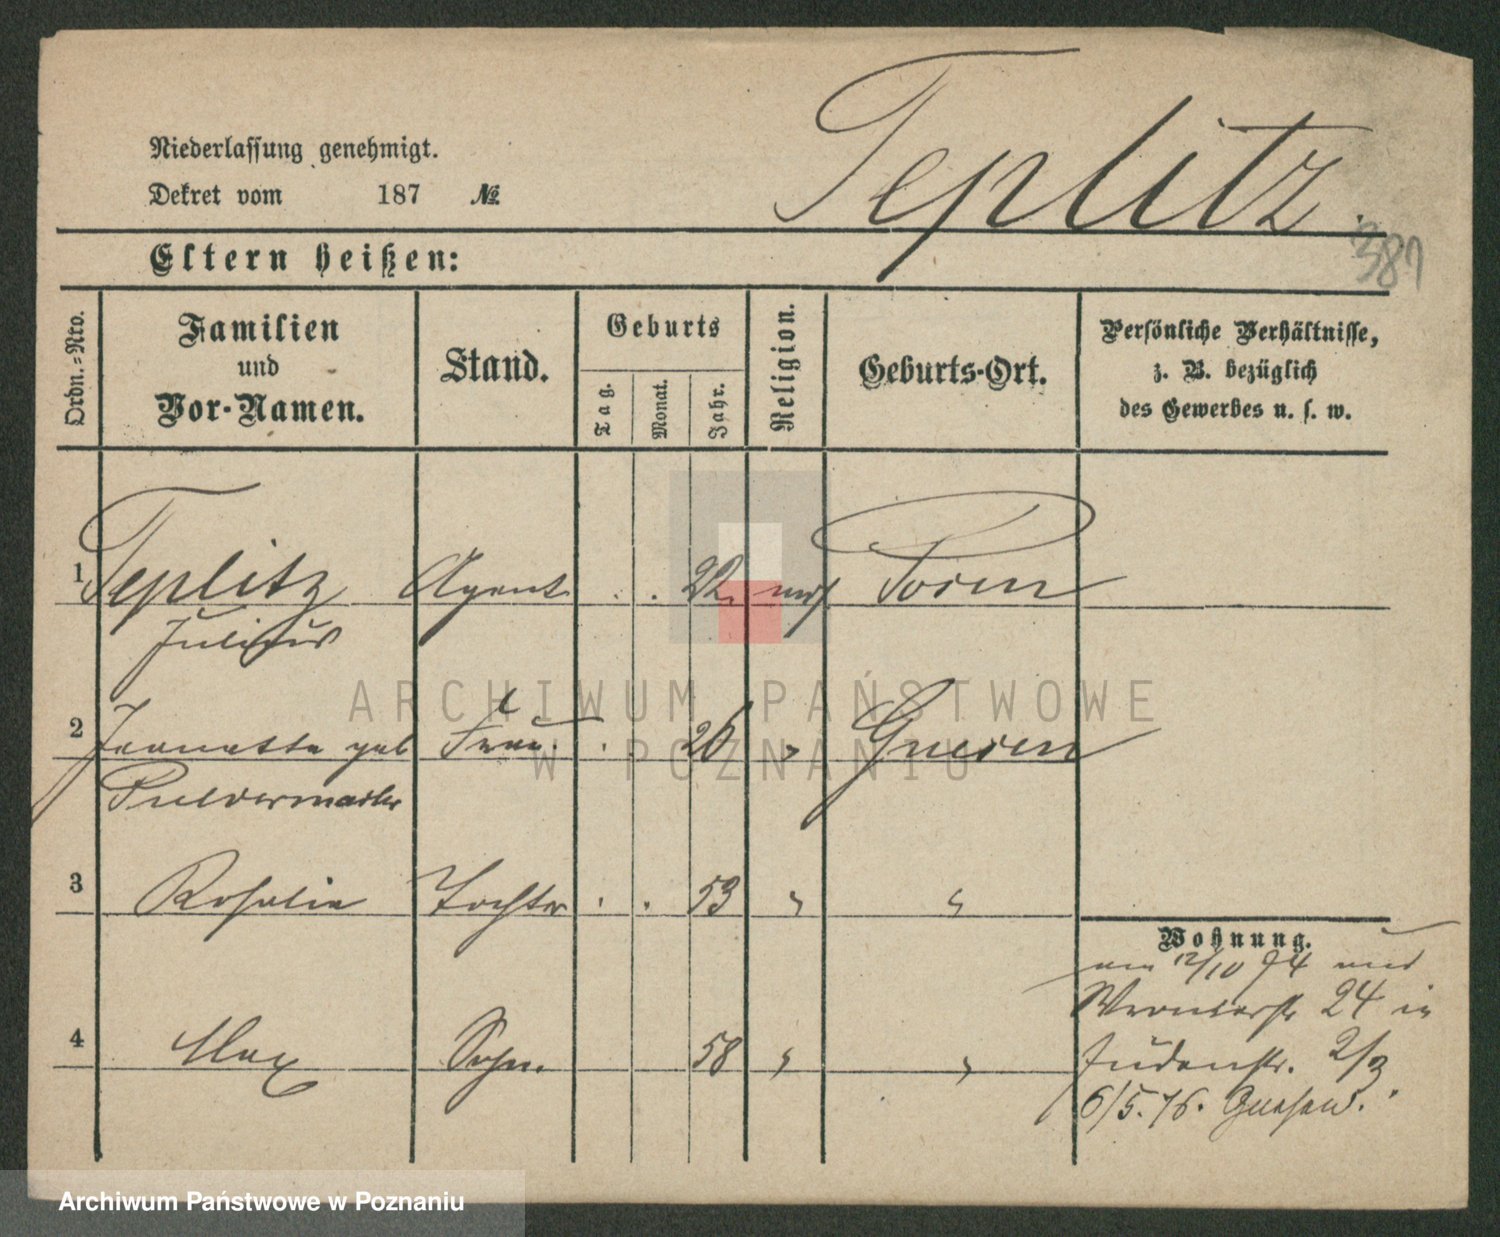 Teplitz.
Niederlassung genehmigt.
Dekret vom 187 №
381
Eltern heißen:
Ordn.-Nro.
Familien
und
Vor-Namen.
Stand.
Geburts
Tag.
Monat.
Jahr.
Religion.
Geburts-Ort.
Persönliche Verhältnisse,
z. B. bezüglich
des Gewerbes u. s. w.
1 Teplitz Agent . . 22. mos. Posen
Julius
2 Jeanette geb Frau. . . 26 " Gnesen
3 Rosalie Tochter . . 53 " "
4 Max Sohn. 58 " "
Wohnung.
am 12/10 74 nach
Wronkerstr 24 in
Judenstr. 2/3
6/5.76. Gnesen.
ARCHIWUM PAŃSTWOWE
W POZNANIU
Archiwum Państwowe w Poznaniu